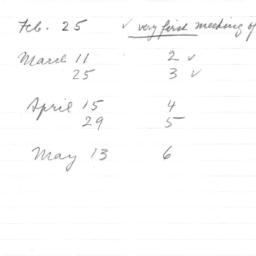 Feb. 25 ✓ very first meeting of
March 11 2 ✓
25 3 ✓
April 15 4
29 5
May 13 6